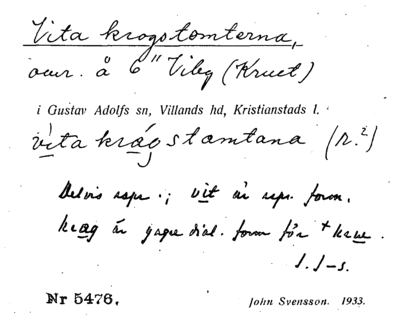 Vita krogstomterna,
omr. å 6" Viby (Kruet)
i Gustav Adolfs sn, Villands hd, Kristianstads l.
vita krågstomtana (R.²)
Delvis rspr.; vit är rspr. form.
krag är yngre dial. form för + krue.
J. J-s.
Nr 5476.
John Svensson. 1933.